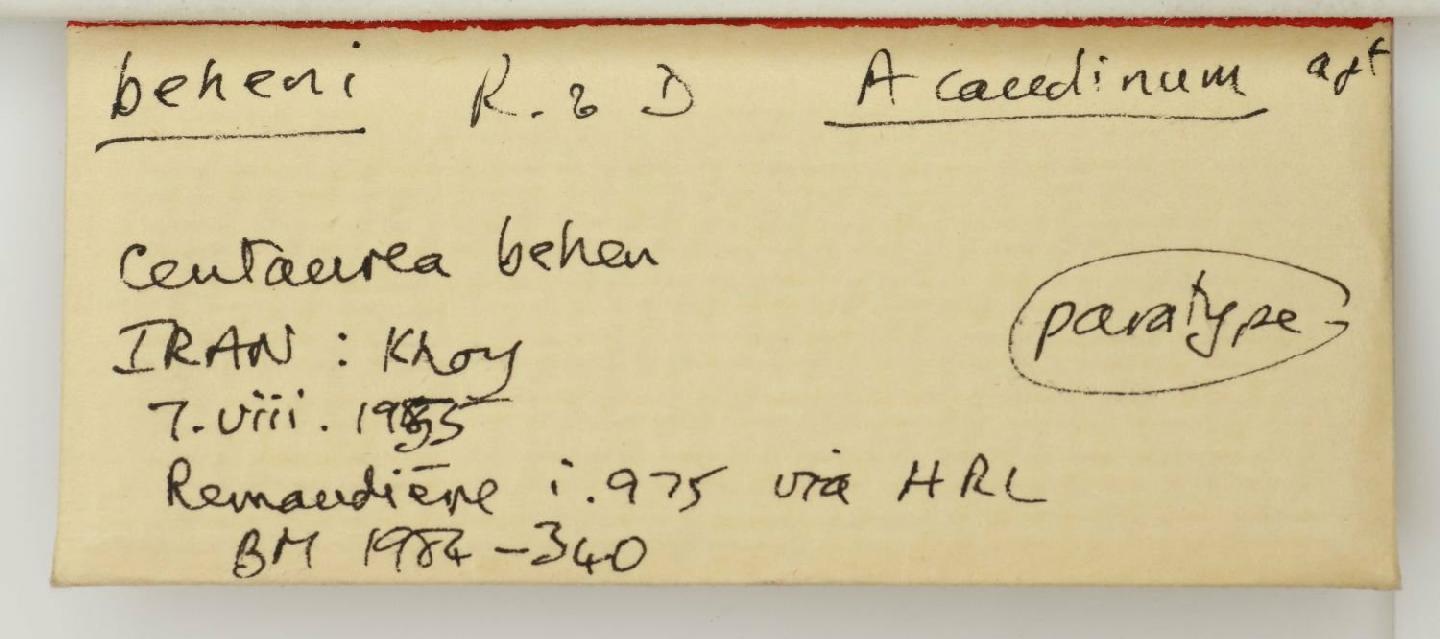 beheni R. & D Acaudinum apt
Centaurea behen
IRAN : Khoy
paratype
7. viii. 1955
Remaudière i.975 via HRL
BM 1984-340